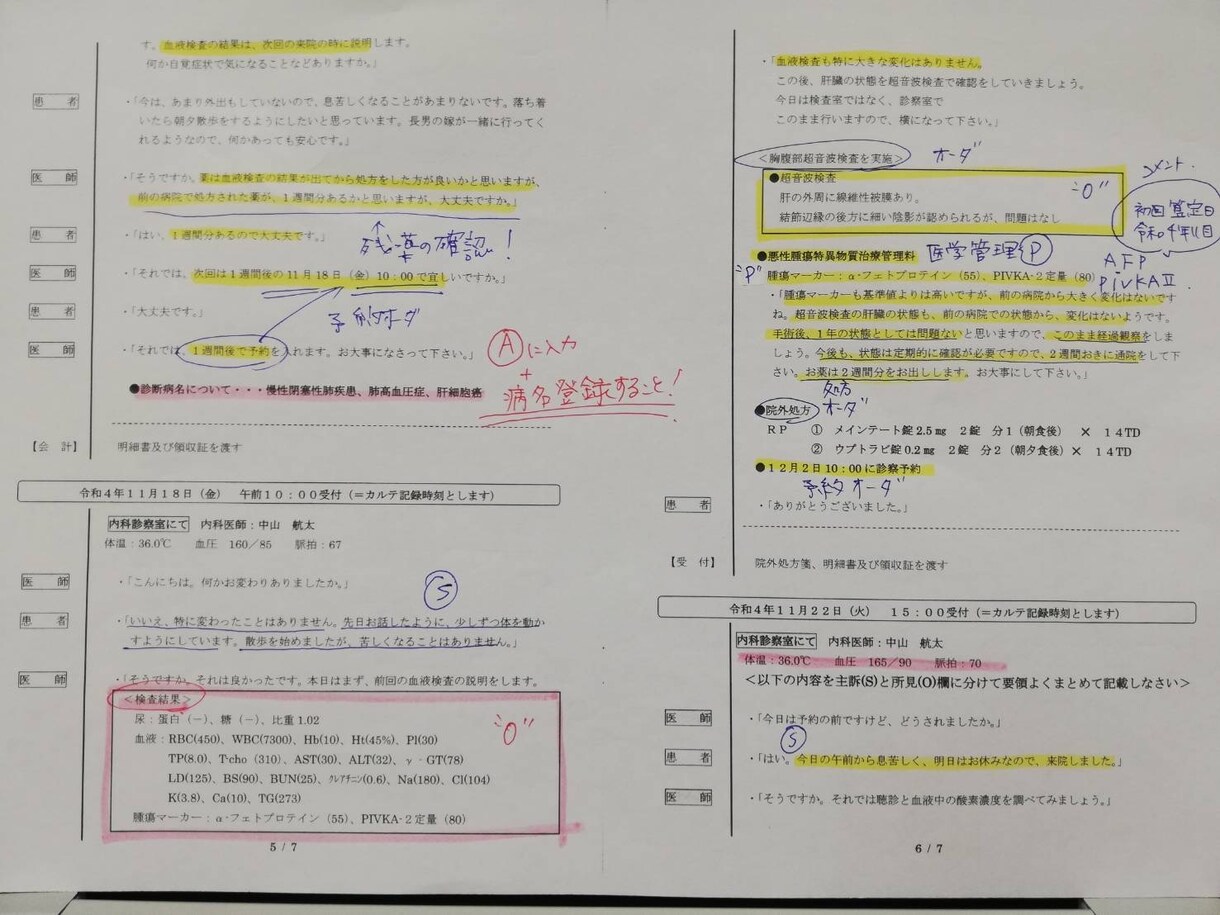 す。血液検査の結果は、次回の来院の時に説明します。
何か自覚症状で気になることなどありますか。」
患者 ・「今は、あまり外出もしていないので、息苦しくなることがあまりないです。落ち着
いたら朝夕散歩をするようにしたいと思っています。長男の嫁が一緒に行ってく
れるようなので、何かあっても安心です。」
医師 ・「そうですか。薬は血液検査の結果が出てから処方をした方が良いかと思いますが、
前の病院で処方された薬が、1週間分あるかと思いますが、大丈夫ですか。」
患者 ・「はい、1週間分あるので大丈夫です。」
↑残薬の確認!
医師 ・「それでは、次回は1週間後の11月18日(金)10:00で宜しいですか。」
予約オーダ
患者 ・「大丈夫です。」
医師 ・「それでは、1週間後で予約を入れます。お大事になさって下さい。」
Aに入力
+
病名登録すること!
●診断病名について・・・慢性閉塞性肺疾患、肺高血圧症、肝細胞癌
【会 計】 明細書及び領収証を渡す
令和4年11月18日(金) 午前10:00受付(=カルテ記録時刻とします)
内科診察室にて 内科医師:中山 航太
体温:36.0℃ 血圧 160/85 脈拍:67
医師 ・「こんにちは。何かお変わりありましたか。」
S
患者 ・「いいえ、特に変わったことはありません。先日お話したように、少しずつ体を動か
すようにしています。散歩を始めましたが、苦しくなることはありません。」
医師 ・「そうですか。それは良かったです。本日はまず、前回の血液検査の説明をします。
<検査結果>
尿:蛋白(-)、糖(-)、比重1.02
"O"
血液:RBC(450)、WBC(7300)、Hb(10)、Ht(45%)、Pl(30)
TP(8.0)、T-cho(310)、AST(30)、ALT(32)、γ‐GT(78)
LD(125)、BS(90)、BUN(25)、クレアチニン(0.6)、Na(180)、Cl(104)
K(3.8)、Ca(10)、TG(273)
腫瘍マーカー:α-フェトプロテイン(55)、PIVKA-2定量(80)
5/7
・「血液検査も特に大きな変化はありません。
この後、肝臓の状態を超音波検査で確認をしていきましょう。
今日は検査室ではなく、診察室で
このまま行いますので、横になって下さい。」
<胸腹部超音波検査を実施> オーダ
●超音波検査
肝の外周に線維性被膜あり。
結節辺縁の後方に細い陰影が認められるが、問題はなし
"O"
コメント
初回算定日
令和4年11月
AFP
PIVKAⅡ
●悪性腫瘍特異物質治療管理料 医学管理P
"P" 腫瘍マーカー:α-フェトプロテイン(55)、PIVKA-2定量(80)
・「腫瘍マーカーも基準値よりは高いですが、前の病院から大きく変化はないです
ね。超音波検査の肝臓の状態も、前の病院での状態から、変化はないようです。
手術後、1年の状態としては問題ないと思いますので、このまま経過観察をしま
しょう。今後も、状態は定期的に確認が必要ですので、2週間おきに通院をして下
さい。お薬は2週間分をお出しします。お大事にして下さい。」
処方
オーダ
●院外処方
RP ① メインテート錠2.5mg 2錠 分1(朝食後) × 14TD
② ウプトラビ錠0.2mg 2錠 分2(朝夕食後)× 14TD
●12月2日10:00に診察予約
予約オーダ
患者 ・「ありがとうございました。」
【受 付】 院外処方箋、明細書及び領収証を渡す
令和4年11月22日(火) 15:00受付(=カルテ記録時刻とします)
内科診察室にて 内科医師:中山 航太
体温:36.0℃ 血圧 165/90 脈拍:70
<以下の内容を主訴(S)と所見(O)欄に分けて要領よくまとめて記載しなさい>
医師 ・「今日は予約の前ですけど、どうされましたか。」
S
患者 ・「はい。今日の午前から息苦しく、明日はお休みなので、来院しました。」
医師 ・「そうですか。それでは聴診と血液中の酸素濃度を調べてみましょう。」
6/7